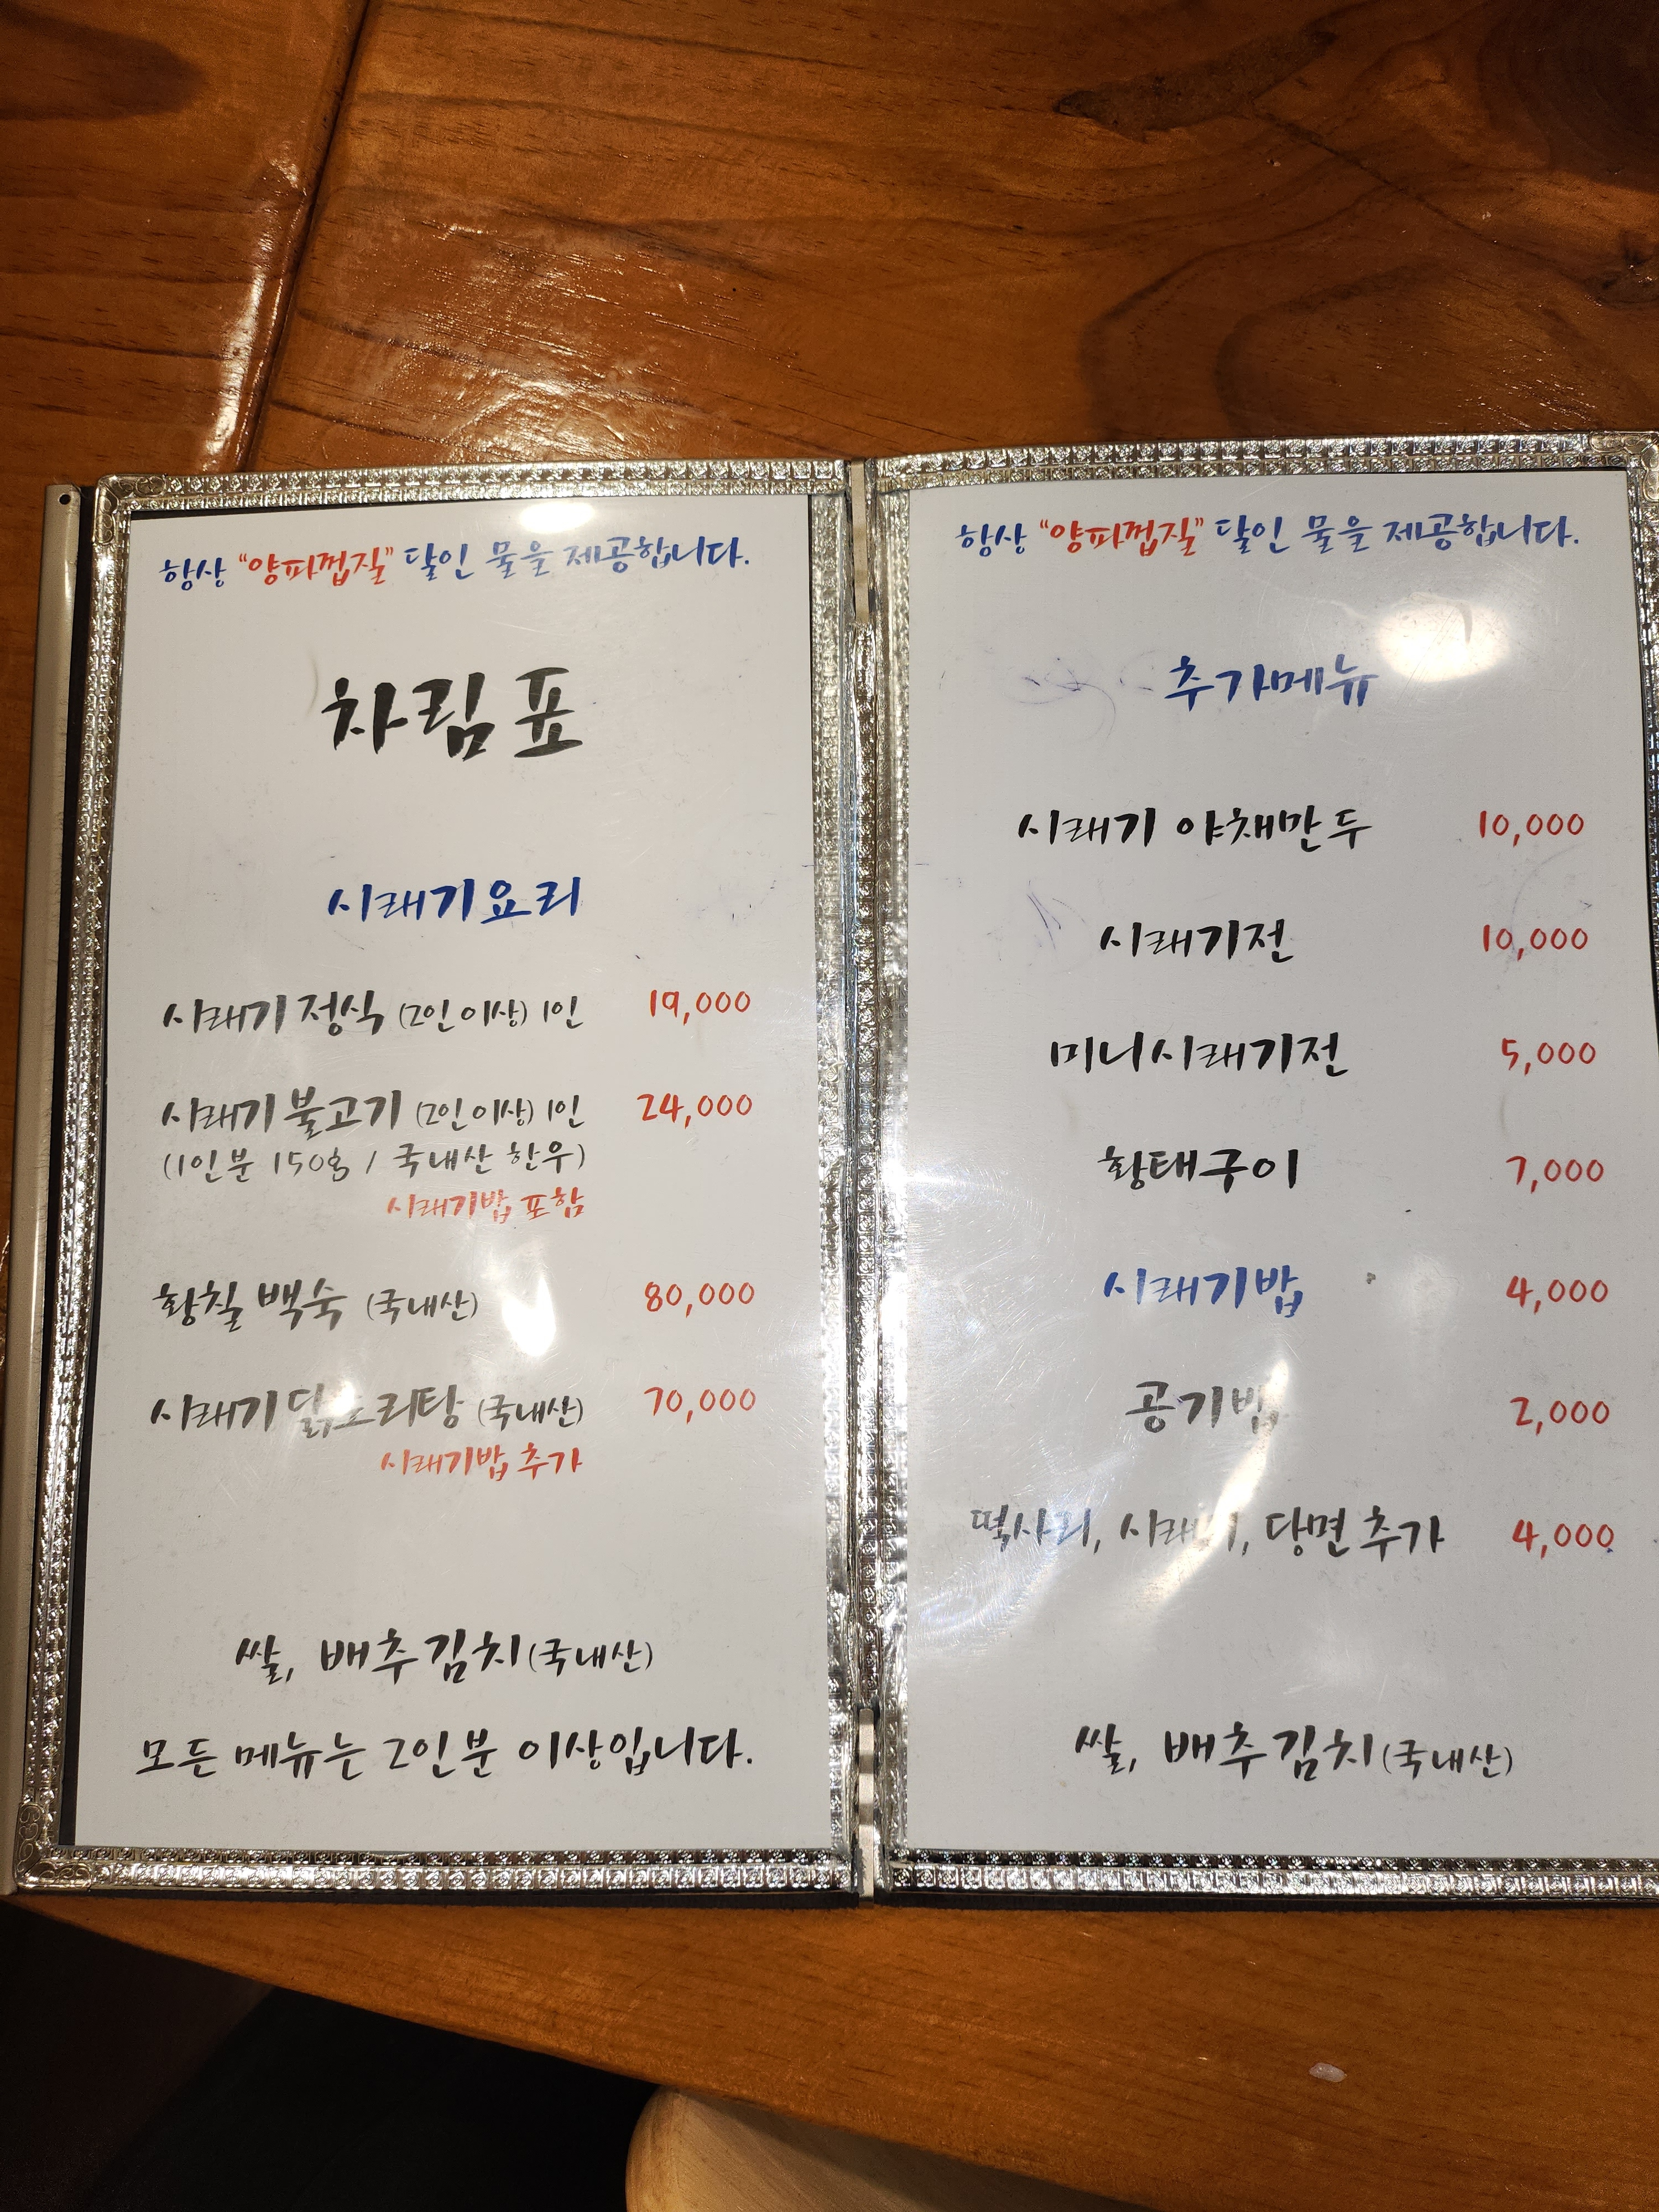 항상 "양파껍질" 달인 물을 제공합니다.
차림표
시래기요리
시래기 정식 (2인 이상) 1인 19,000
시래기 불고기 (2인 이상) 1인 24,000
(1인분 150g / 국내산 한우)
시래기밥 포함
황칠 백숙 (국내산) 80,000
시래기 닭도리탕 (국내산) 70,000
시래기밥 추가
쌀, 배추김치(국내산)
모든 메뉴는 2인분 이상입니다.
항상 "양파껍질" 달인 물을 제공합니다.
추가메뉴
시래기 야채만두 10,000
시래기전 10,000
미니시래기전 5,000
황태구이 7,000
시래기밥 4,000
공기밥 2,000
떡사리, 시래기, 당면 추가 4,000
쌀, 배추김치(국내산)